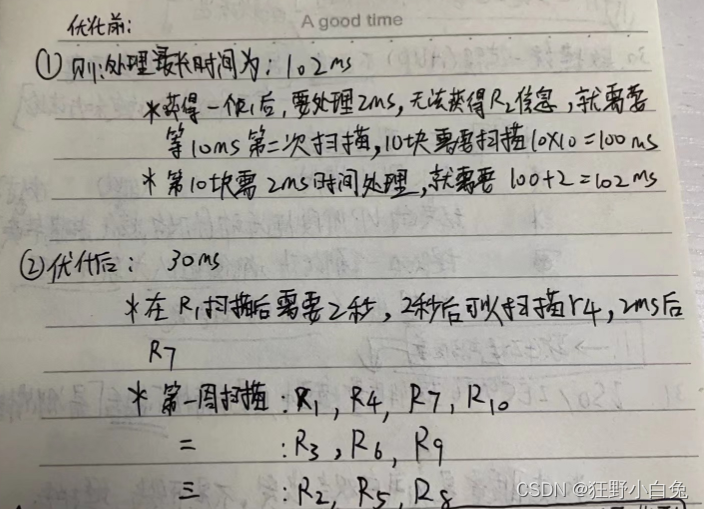 A good time
优化前:
① 则:处理最长时间为:102ms
*获得一块后,要处理2ms,无法获得R2信息,就需要
等10ms第二次扫描,10块需要扫描10X10=100ms
*第10块需2ms时间处理,就需要100+2=102ms
②优化后: 30ms
*在R1扫描后需要2秒,2秒后可以扫描r4,2ms后
R7
*第一周扫描:R1,R4,R7,R10
二 :R3,R6,R9
三 :R2,R5,R8
CSDN @狂野小白兔